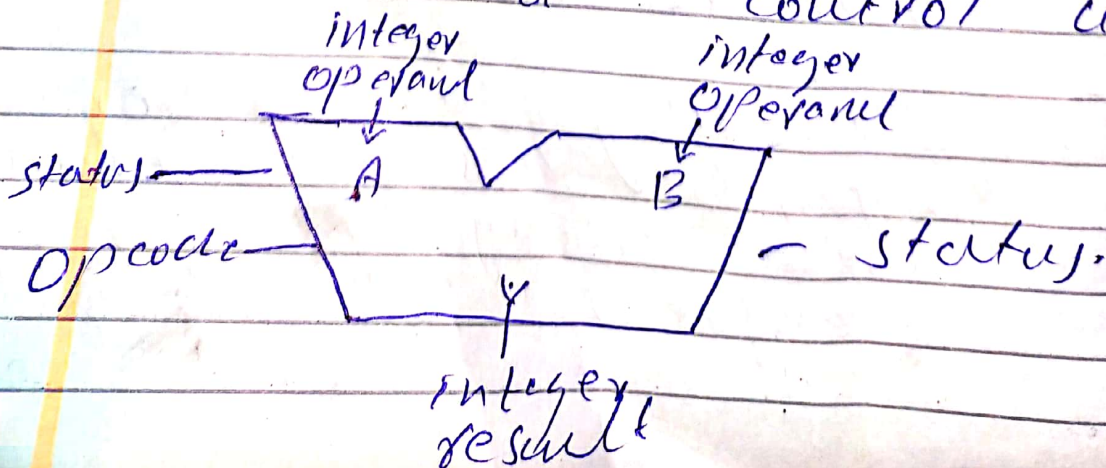 control
integer
operand
integer
operand
status
A
B
opcode
status.
Y
integer
result